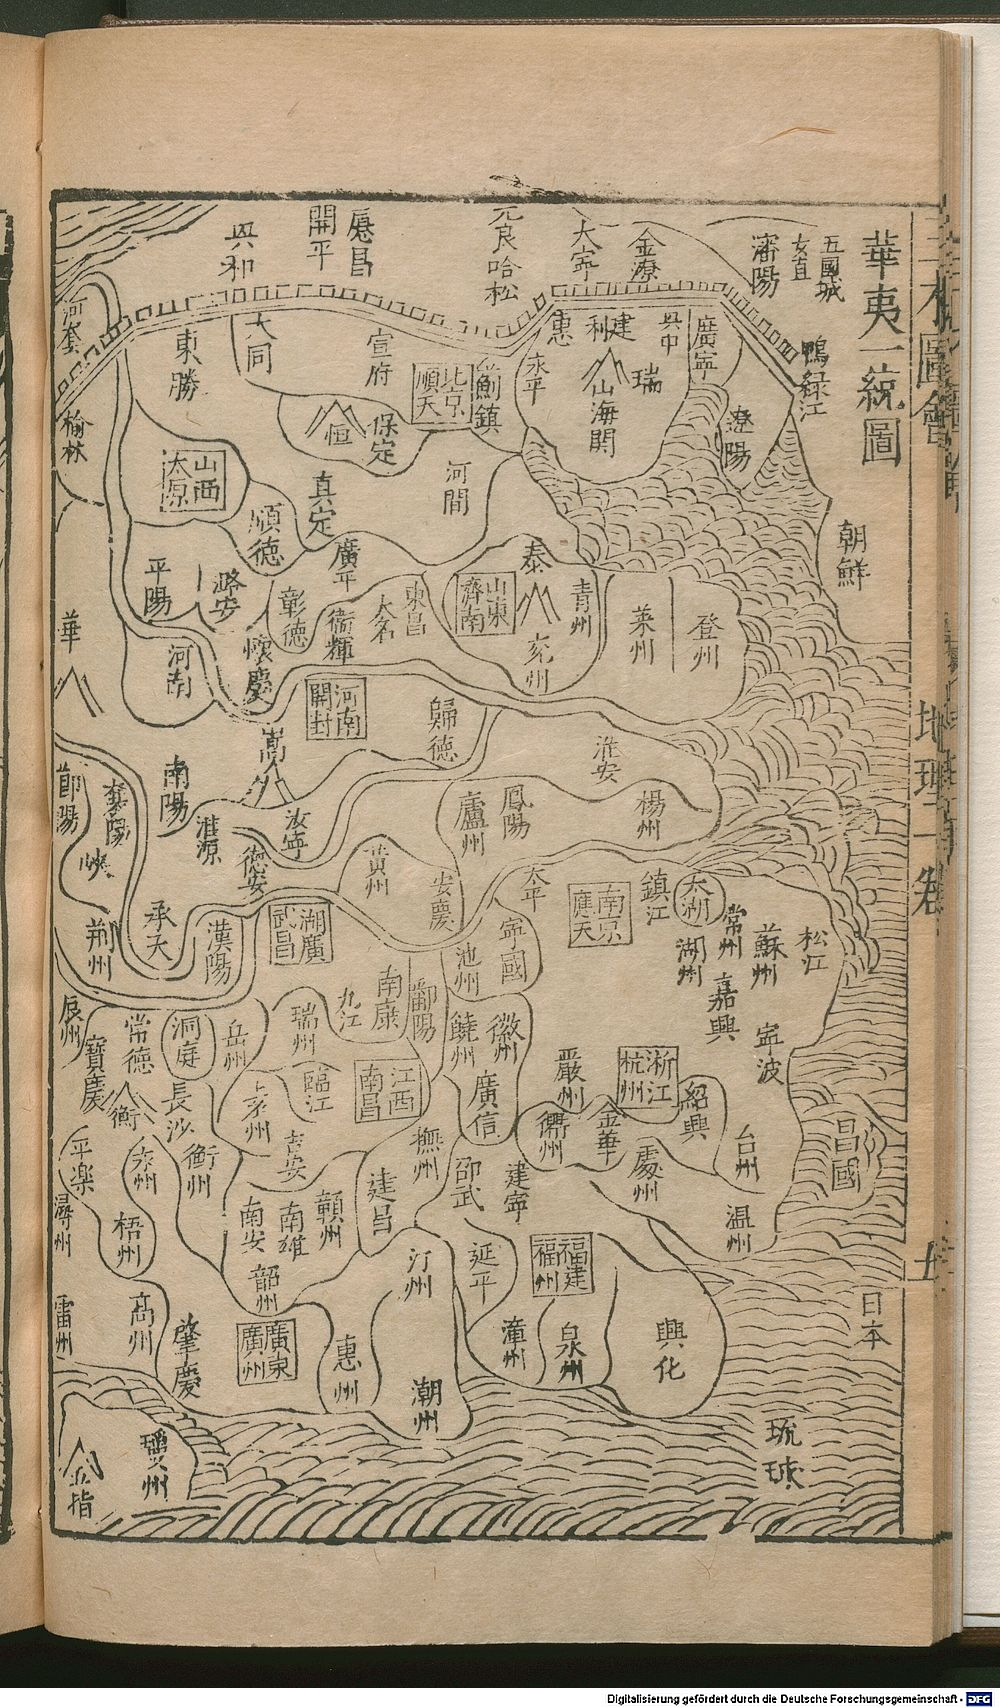 華夷一統圖
地理一卷
五國城
女直
瀋陽
金遼
大寧
應昌
開平
河套
鴨緑江
廣寧
遼陽
建
利
惠
永平
瑞
山海関
薊鎮
北京
順天
宣府
大同
東勝
榆林
保定
恒
河間
真定
山西
太原
順德
廣平
平陽
潞安
彰德
衛輝
大名
東昌
懷慶
河南
華
朝鮮
登州
萊州
青州
泰
山東
濟南
兖州
河南
開封
歸德
嵩
汝寧
南陽
淮源
德安
鄖陽
襄陽
峽
荆州
承天
漢陽
湖廣
武昌
淮安
揚州
鳳陽
廬州
黄州
安慶
太平
南京
應天
鎮江
太湖
常州
蘇州
松江
湖州
嘉興
寧國
池州
徽州
饒州
鄱陽
南康
九江
瑞州
岳州
洞庭
常德
辰州
寶慶
衡
長沙
臨江
江西
南昌
廣信
嚴州
浙江
杭州
紹興
寧波
昌國
台州
温州
處州
金華
衢州
建寧
邵武
撫州
建昌
吉安
衡州
永州
平楽
潯州
梧州
南安
南雄
贛州
韶州
汀州
延平
福建
福州
漳州
泉州
興化
日本
琉球
潮州
惠州
廣東
廣州
肇慶
高州
雷州
瓊州
Digitalisierung gefördert durch die Deutsche Forschungsgemeinschaft - DFG